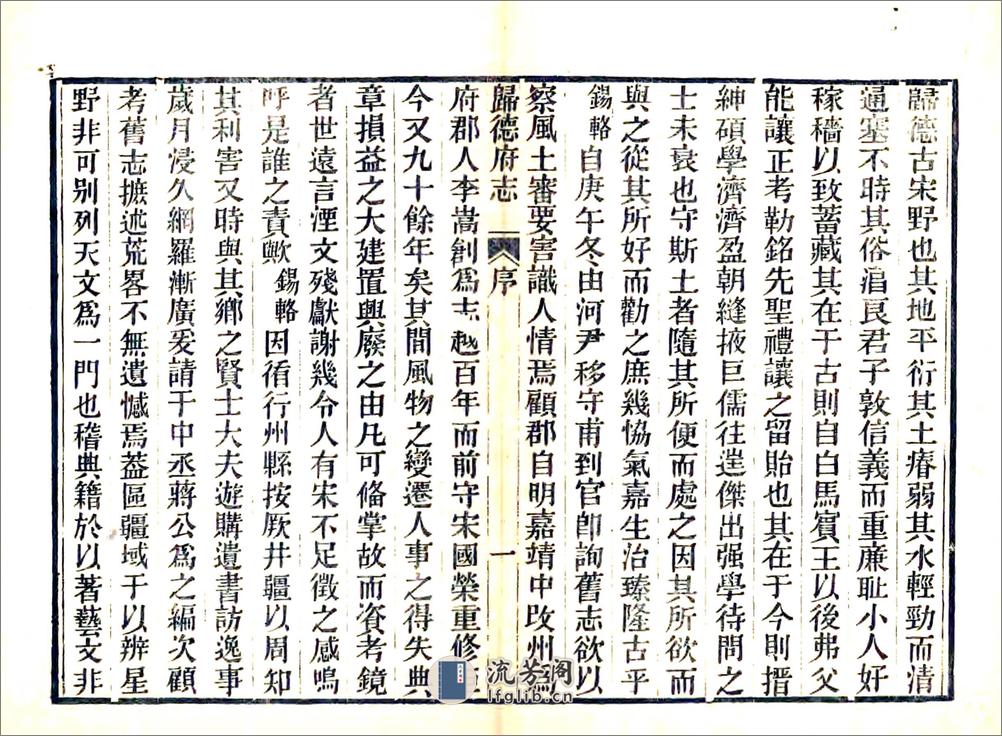 歸德古宋野也其地平衍其土瘠弱其水輕勁而清
通塞不時其俗淊良君子敦信義而重廉耻小人好
稼穡以致蓄藏其在于古則自白馬賓王以後弗父
能讓正考勒銘先聖禮讓之留貽也其在于今則搢
紳碩學濟濟盈朝縫掖巨儒往達傑出强學待問之
士未衰也守斯土者隨其所便而處之因其所欲而
與之從其所好而勸之庶幾恊氣嘉生治臻隆古乎
錫輅自庚午冬由河尹移守甫到官即詢舊志欲以
察風土審要害識人情焉顧郡自明嘉靖中改州為
歸德府志 序 一
府郡人李嵩創爲志越百年而前守宋國榮重修之
今又九十餘年矣其間風物之變遷人事之得失典
章損益之大建置興廢之由凡可備掌故而資考鏡
者世遠言湮文殘獻謝幾令人有宋不足徵之感嗚
呼是誰之責歟錫輅因循行州縣按厥井疆以周知
其利害又時與其鄉之賢士大夫遊購遺書訪逸事
歲月浸久網羅漸廣爰請于中丞蔣公爲之編次顧
考舊志摭述荒畧不無遺憾焉葢區疆域于以辨星
野非可别列天文爲一門也稽典籍於以著藝文非
流芳閣
lfglib.cn